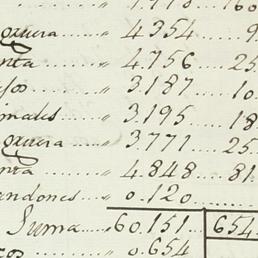 160
oguera ...... „ 4.354 ... 9
nta ........ „ 4.756 ... 25
jos ........ „ 3.187 .... 10
inales ..... „ 3.195 .... 18
oguera ..... „ 3.771 ... 25
nta ........ „ 4.848 ... 81
andones ... „ 0.120
Suma .... „ 60.151 654
„ 0.654